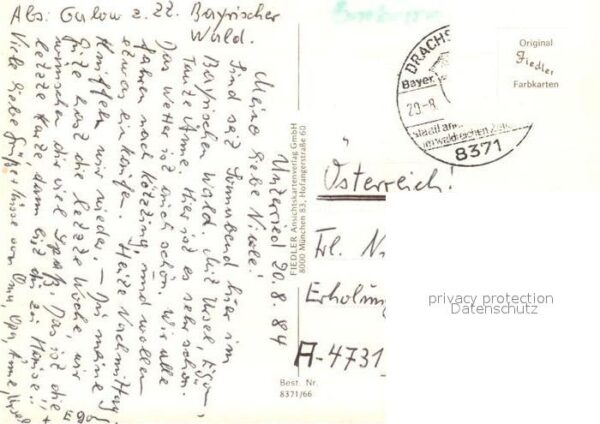 Abs: Galow z. Zt. Bayrischer
Wald.
Unterried 20.8.84
Meine liebe Nicole!
Sind seit Sonnabend hier im
Bayrischen Wald. Mit Onkel Egon,
Tante Anne. Hier ist es sehr schön.
Das Wetter ist auch schön. Wir alle
fahren nach Kötzting und wollen
etwas einkaufen. Heute Nachmittag
wieder. – Du meine
Gute hast die letzte Woche, wir
wünschen dir viel Spaß. Das ist die
letzte Karte, dann bist du zu Hause.
Viele liebe Grüße + Küsse von Oma, Opa, Anne,
+ Egon
FIEDLER Ansichtskartenverlag GmbH
8000 München 83, Hofangerstraße 60
Best. Nr.
8371/66
DRACHS
Bayer.
20.-8.
im waldreichen
8371
Original
Fiedler
Farbkarten
Österreich!
Frl. Ni
Erholun
A-4731
privacy protection
Datenschutz